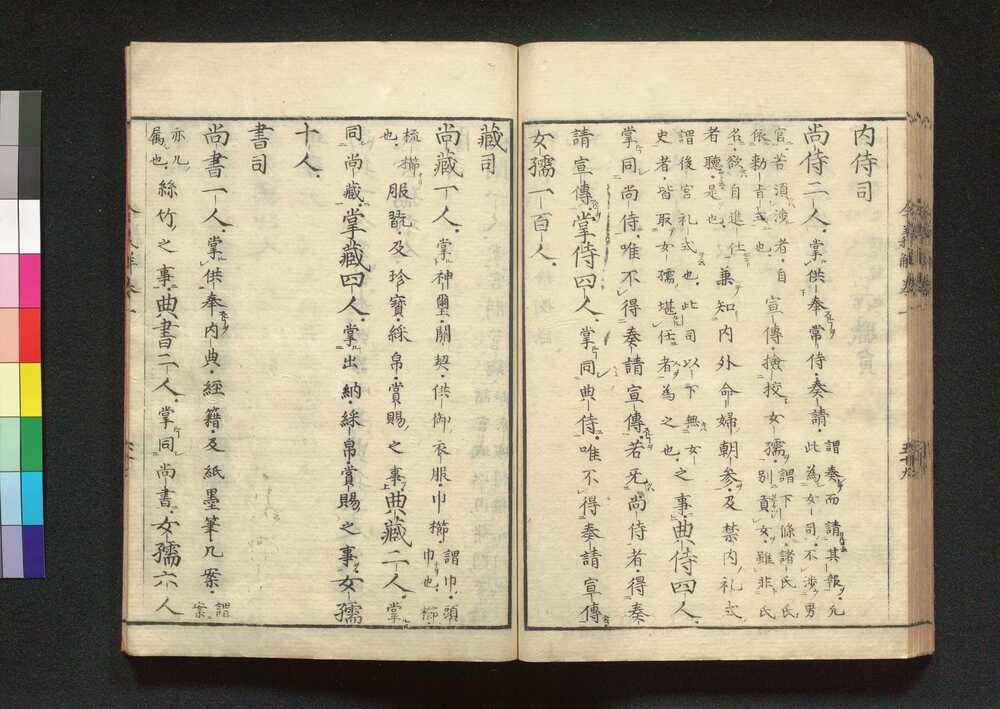 内侍司
尚侍二人。掌供奉常侍。奏請。謂奏而請其報。凡此為女司。不渉男
官若須渉者自依勅旨式也。宣傳。撿挍女孺。謂下條。諸氏氏別貢女。雖非氏
名。欲自進仕者聴。是也。兼知内外命婦朝参。及禁内礼式
謂後宮礼式也。此司以下無女史者。皆取女孺堪任者為之也。之事。典侍四人。
掌同尚侍。唯不得奏請宣傳。若无尚侍者。得奏
請宣傳。掌侍四人。掌同典侍。唯不得奏請宣傳
女孺一百人。
藏司
尚藏一人。掌神璽。關契。供御衣服。巾櫛。謂巾。頭巾也。櫛
梳櫛也。服翫。及珍寳。綵帛。賞賜之事。典藏二人。掌
同尚藏。掌藏四人。掌出納。綵帛賞賜之事。女孺
十人。
書司
尚書一人。掌供奉内典。經籍。及紙墨筆几案。謂案
亦几属也。絲竹之事。典書二人。掌同尚書。女孺六人